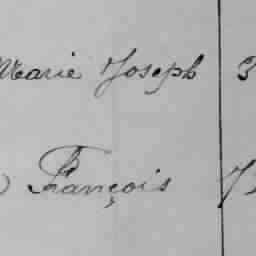 Marie Joseph 3
François 7